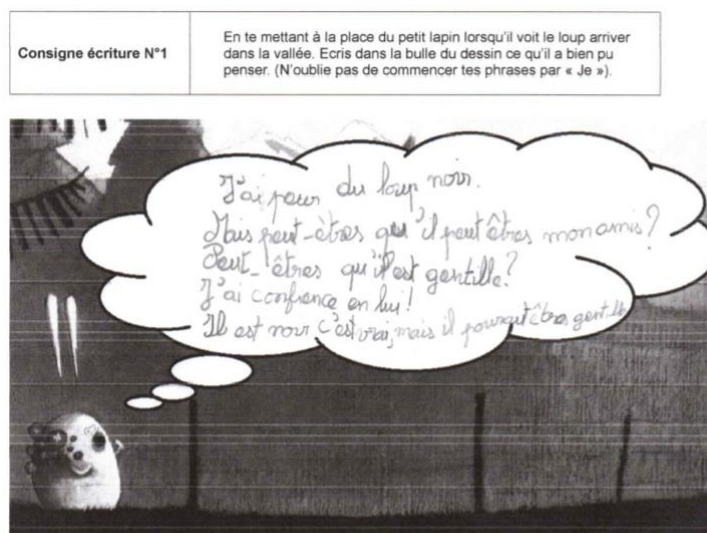 Consigne écriture N°1
En te mettant à la place du petit lapin lorsqu'il voit le loup arriver
dans la vallée. Ecris dans la bulle du dessin ce qu'il a bien pu
penser. (N'oublie pas de commencer tes phrases par « Je »).
J'ai peur du loup noir.
Mais peut-êtres qu'il peut êtres mon amis?
Peut-êtres qu'il est gentille?
J'ai confience en lui!
Il est noir c'est vrai, mais il pourait êtres gentille